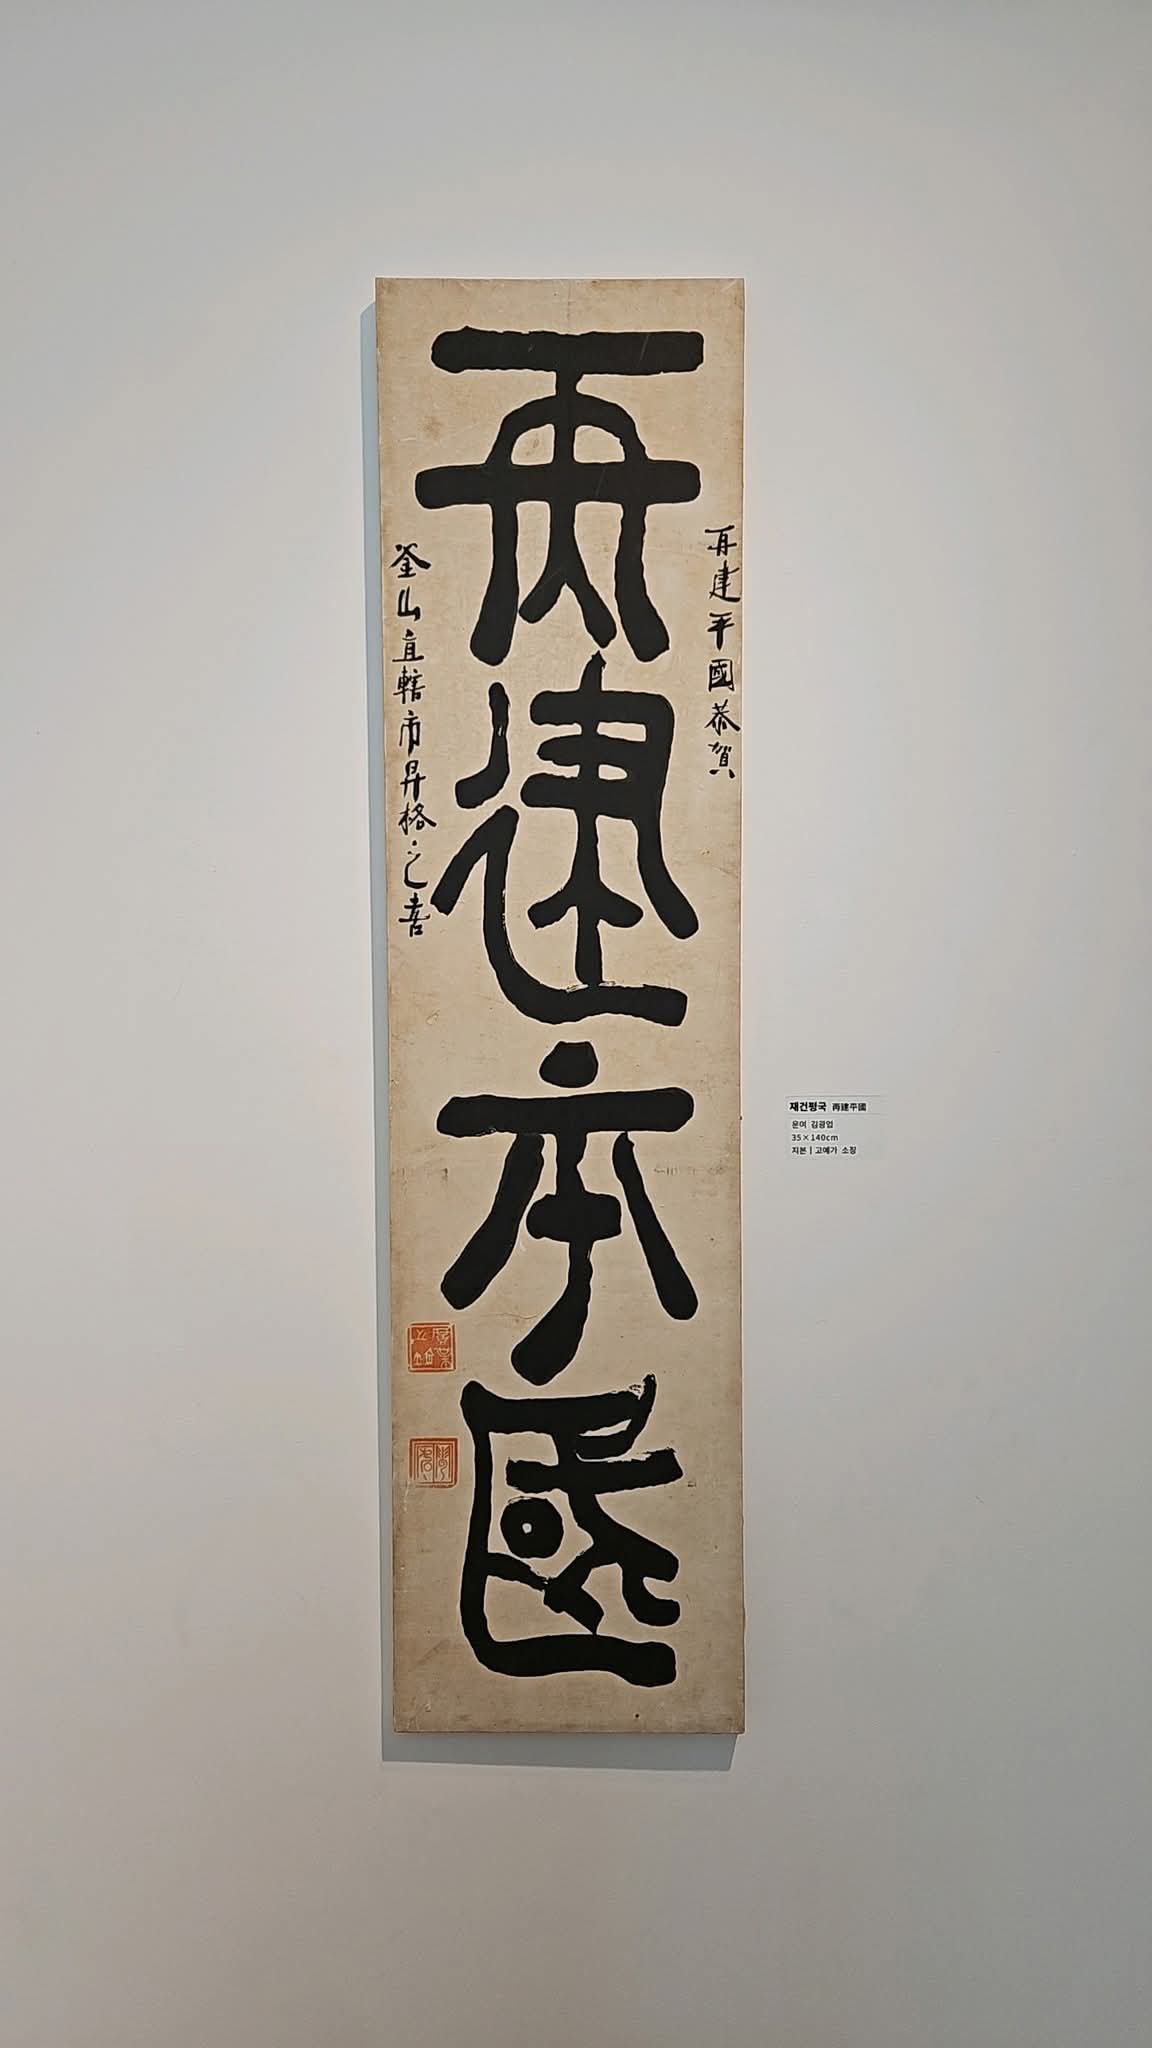 再建平國
再建平國恭賀
釜山直轄市昇格之喜
재건평국 再建平國
운여 김광업
35×140cm
지본 | 고예가 소장